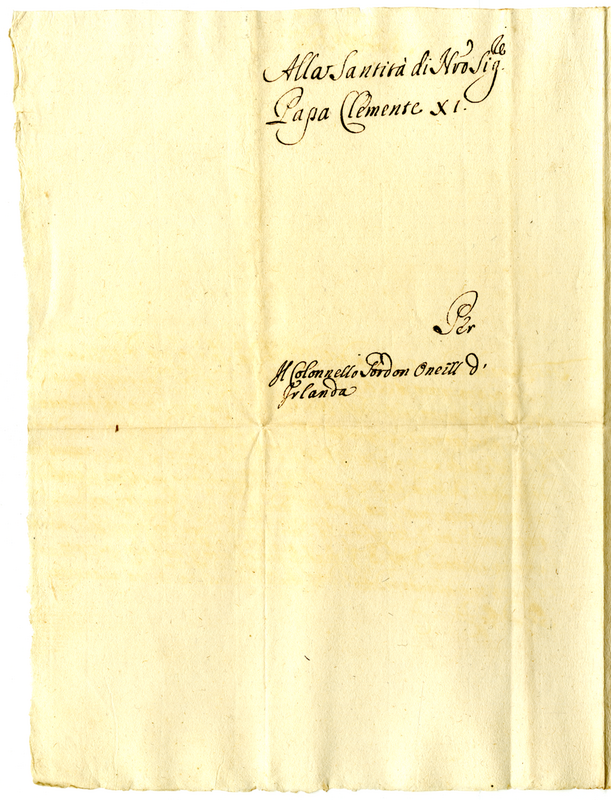 Alla Santità di Nro Sig.re
Papa Clemente XI.
Per
Il Colonnello Gordon Oneill d'
Irlanda